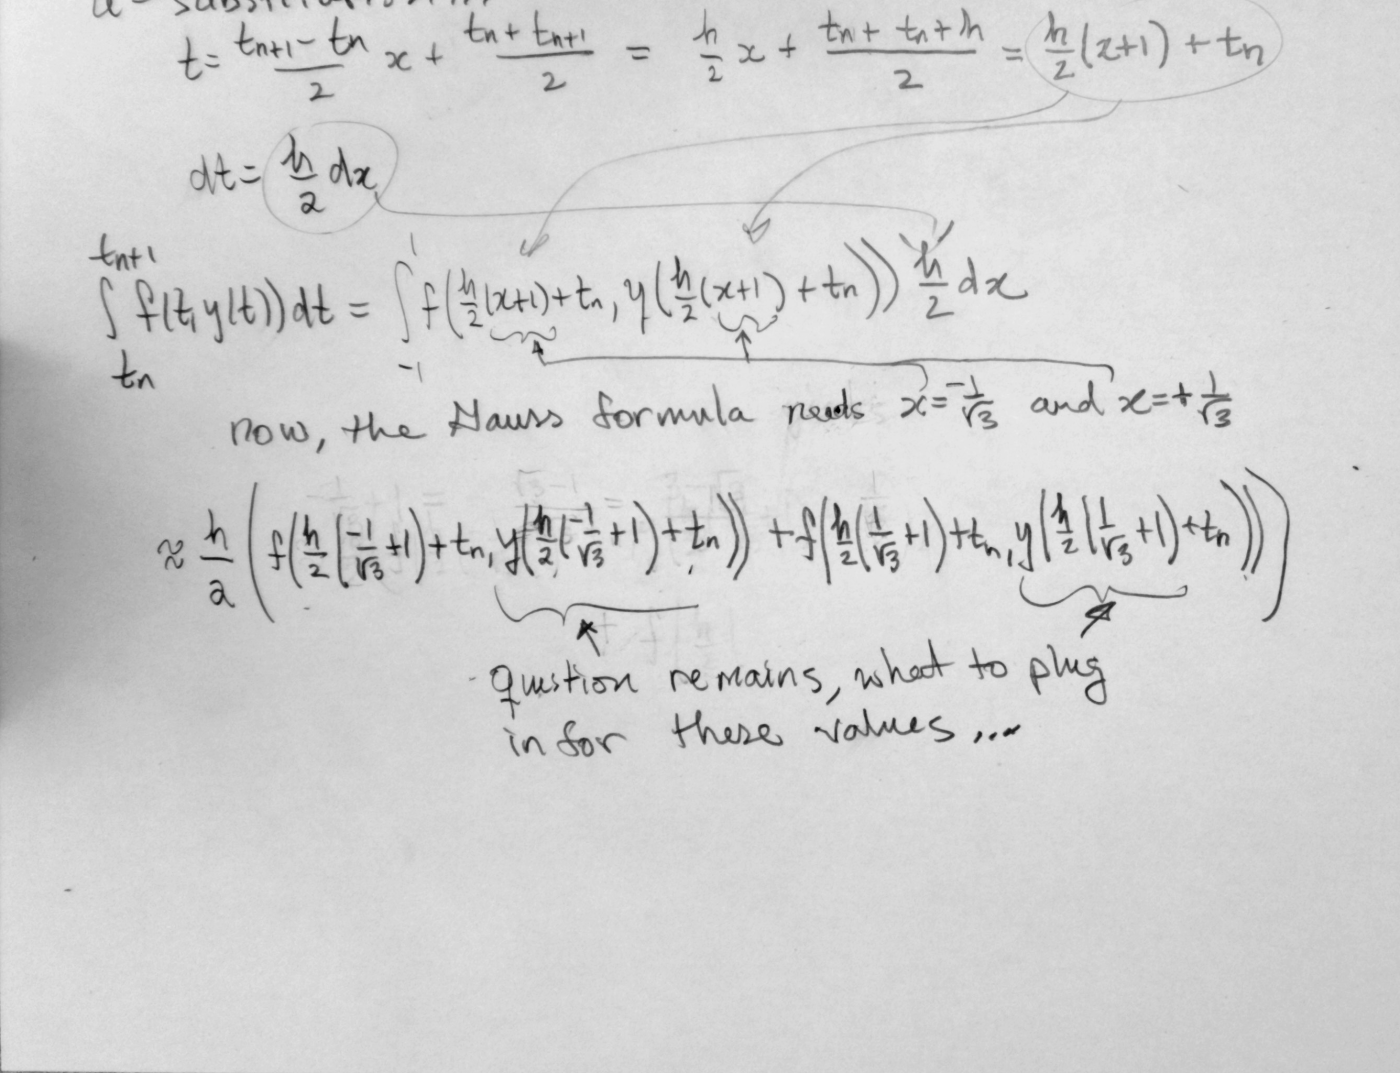 u-substitution
t = \frac{t_{n+1} - t_n}{2} x + \frac{t_n + t_{n+1}}{2} = \frac{h}{2} x + \frac{t_n + t_n + h}{2} = \frac{h}{2}(x+1) + t_n
dt = \frac{h}{2} dx
\int_{t_n}^{t_{n+1}} f(t, y(t)) dt = \int_{-1}^{1} f(\frac{h}{2}(x+1) + t_n, y(\frac{h}{2}(x+1) + t_n)) \frac{h}{2} dx
now, the Gauss formula needs x = \frac{-1}{\sqrt{3}} and x = +\frac{1}{\sqrt{3}}
≈ \frac{h}{2} ( f(\frac{h}{2}(\frac{-1}{\sqrt{3}}+1) + t_n, y(\frac{h}{2}(\frac{-1}{\sqrt{3}}+1) + t_n)) + f(\frac{h}{2}(\frac{1}{\sqrt{3}}+1) + t_n, y(\frac{h}{2}(\frac{1}{\sqrt{3}}+1) + t_n)) )
question remains, what to plug
in for these values ...